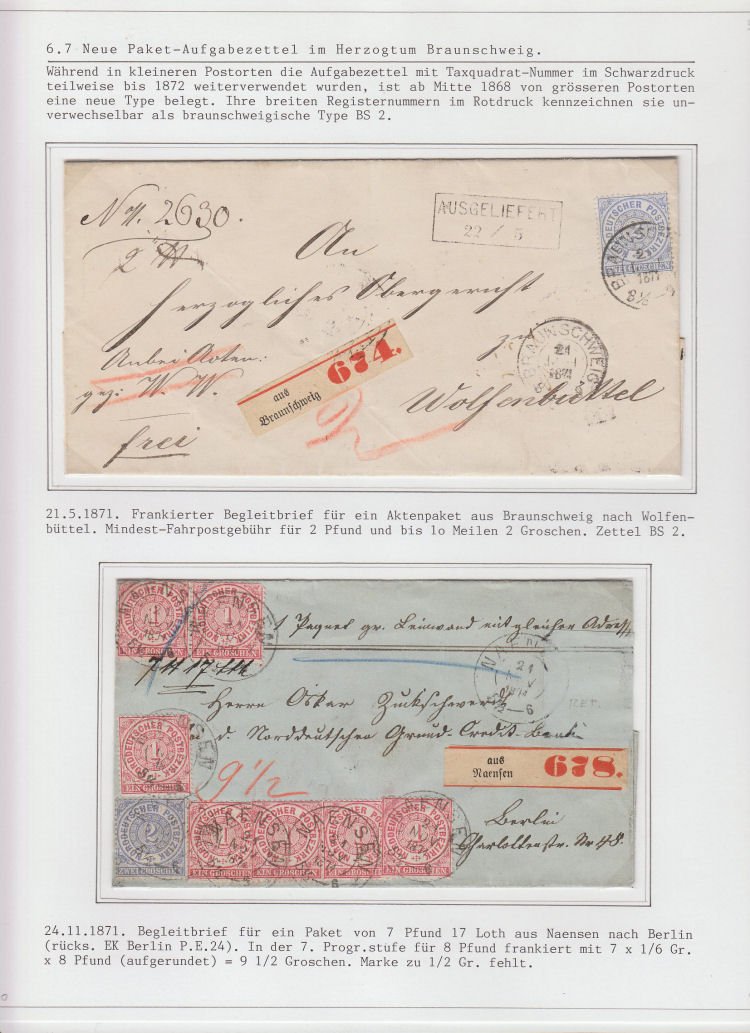 6.7 Neue Paket-Aufgabezettel im Herzogtum Braunschweig.
Während in kleineren Postorten die Aufgabezettel mit Taxquadrat-Nummer im Schwarzdruck
teilweise bis 1872 weiterverwendet wurden, ist ab Mitte 1868 von grösseren Postorten
eine neue Type belegt. Ihre breiten Registernummern im Rotdruck kennzeichnen sie un-
verwechselbar als braunschweigische Type BS 2.
No. 2630.
AUSGELIEFERT
22 / 5
An
herzogliches Obergericht
zu
Anbei Acten:
gez: W. W.
frei
Wolfenbüttel
aus
Braunschweig
674.
BRAUNSCHWEIG
21
1871
NORDDEUTSCHER POSTBEZIRK
ZWEI GROSCHEN
21.5.1871. Frankierter Begleitbrief für ein Aktenpaket aus Braunschweig nach Wolfen-
büttel. Mindest-Fahrpostgebühr für 2 Pfund und bis 1o Meilen 2 Groschen. Zettel BS 2.
1 Paquet gr. Leinwand mit gleicher Adresse
EIN GROSCHEN
EIN GROSCHEN
NAENSEN
21
Herrn Oskar Zuckschwerdt
d. Norddeutschen Grund-Credit-Bank
NORDDEUTSCHER POSTBEZIRK
EIN GROSCHEN
9 1/2
aus
Naensen
678.
Berlin
Charlottenstr. No 48.
ZWEI GROSCHEN
EIN GROSCHEN
24.11.1871. Begleitbrief für ein Paket von 7 Pfund 17 Loth aus Naensen nach Berlin
(rücks. EK Berlin P.E.24). In der 7. Progr.stufe für 8 Pfund frankiert mit 7 x 1/6 Gr.
x 8 Pfund (aufgerundet) = 9 1/2 Groschen. Marke zu 1/2 Gr. fehlt.